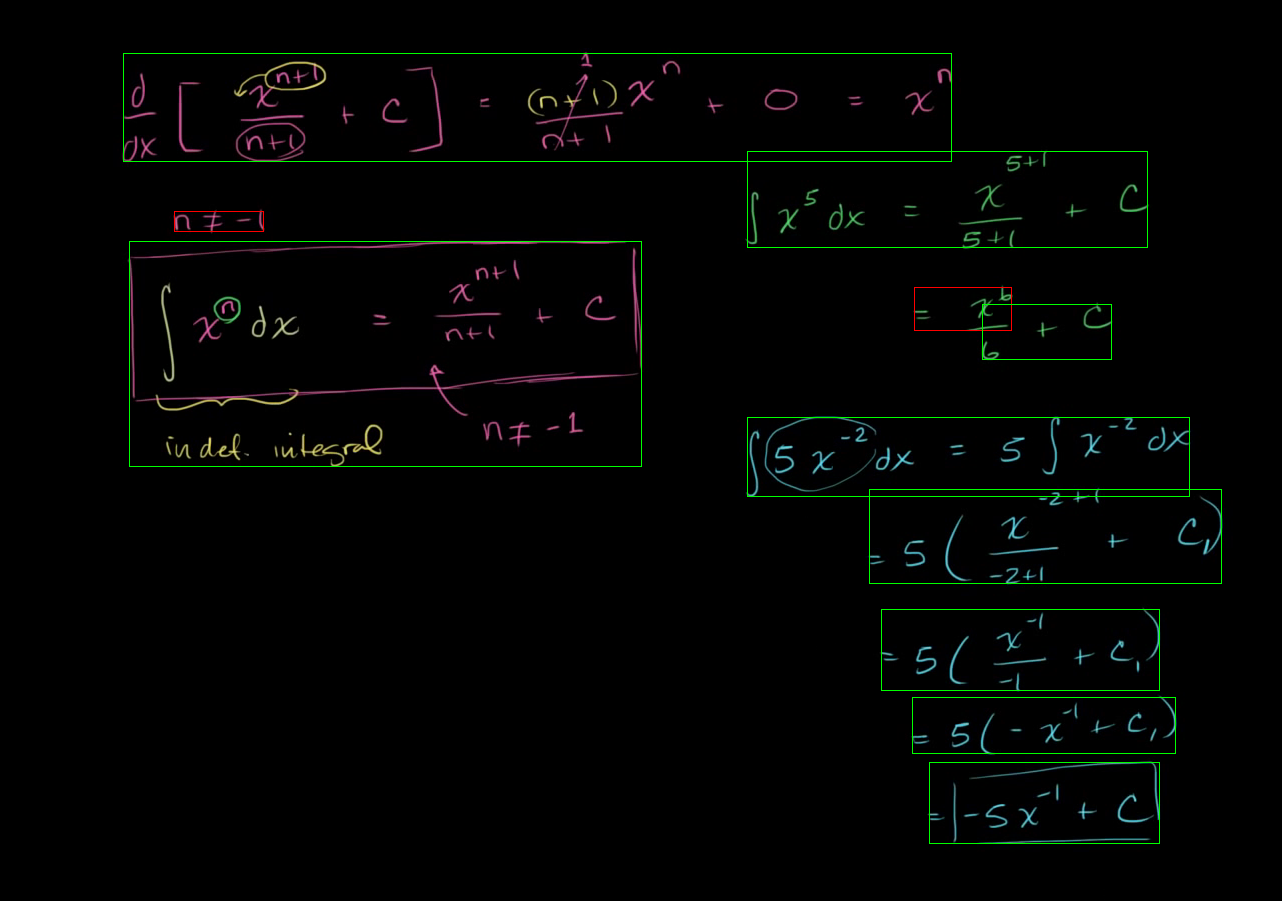 d/dx [ x^(n+1)/(n+1) + C ] = (n+1)/(n+1) x^n + 0 = x^n
1
n ≠ -1
∫ x^n dx = x^(n+1)/(n+1) + C
n ≠ -1
indef. integral
∫ x^5 dx = x^(5+1)/(5+1) + C
= x^6/6 + C
∫ 5x^-2 dx = 5 ∫ x^-2 dx
= 5 ( x^(-2+1)/(-2+1) + C₁ )
= 5 ( x^-1/-1 + C₁ )
= 5 ( - x^-1 + C₁ )
= -5x^-1 + C